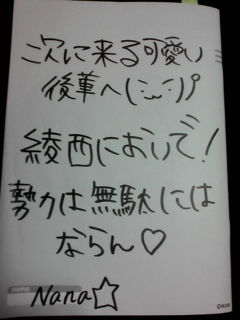 次に来る可愛い
後輩へ(:ω:)ノ
綾西においで!
勢力は無駄には
ならん♡
Nana☆